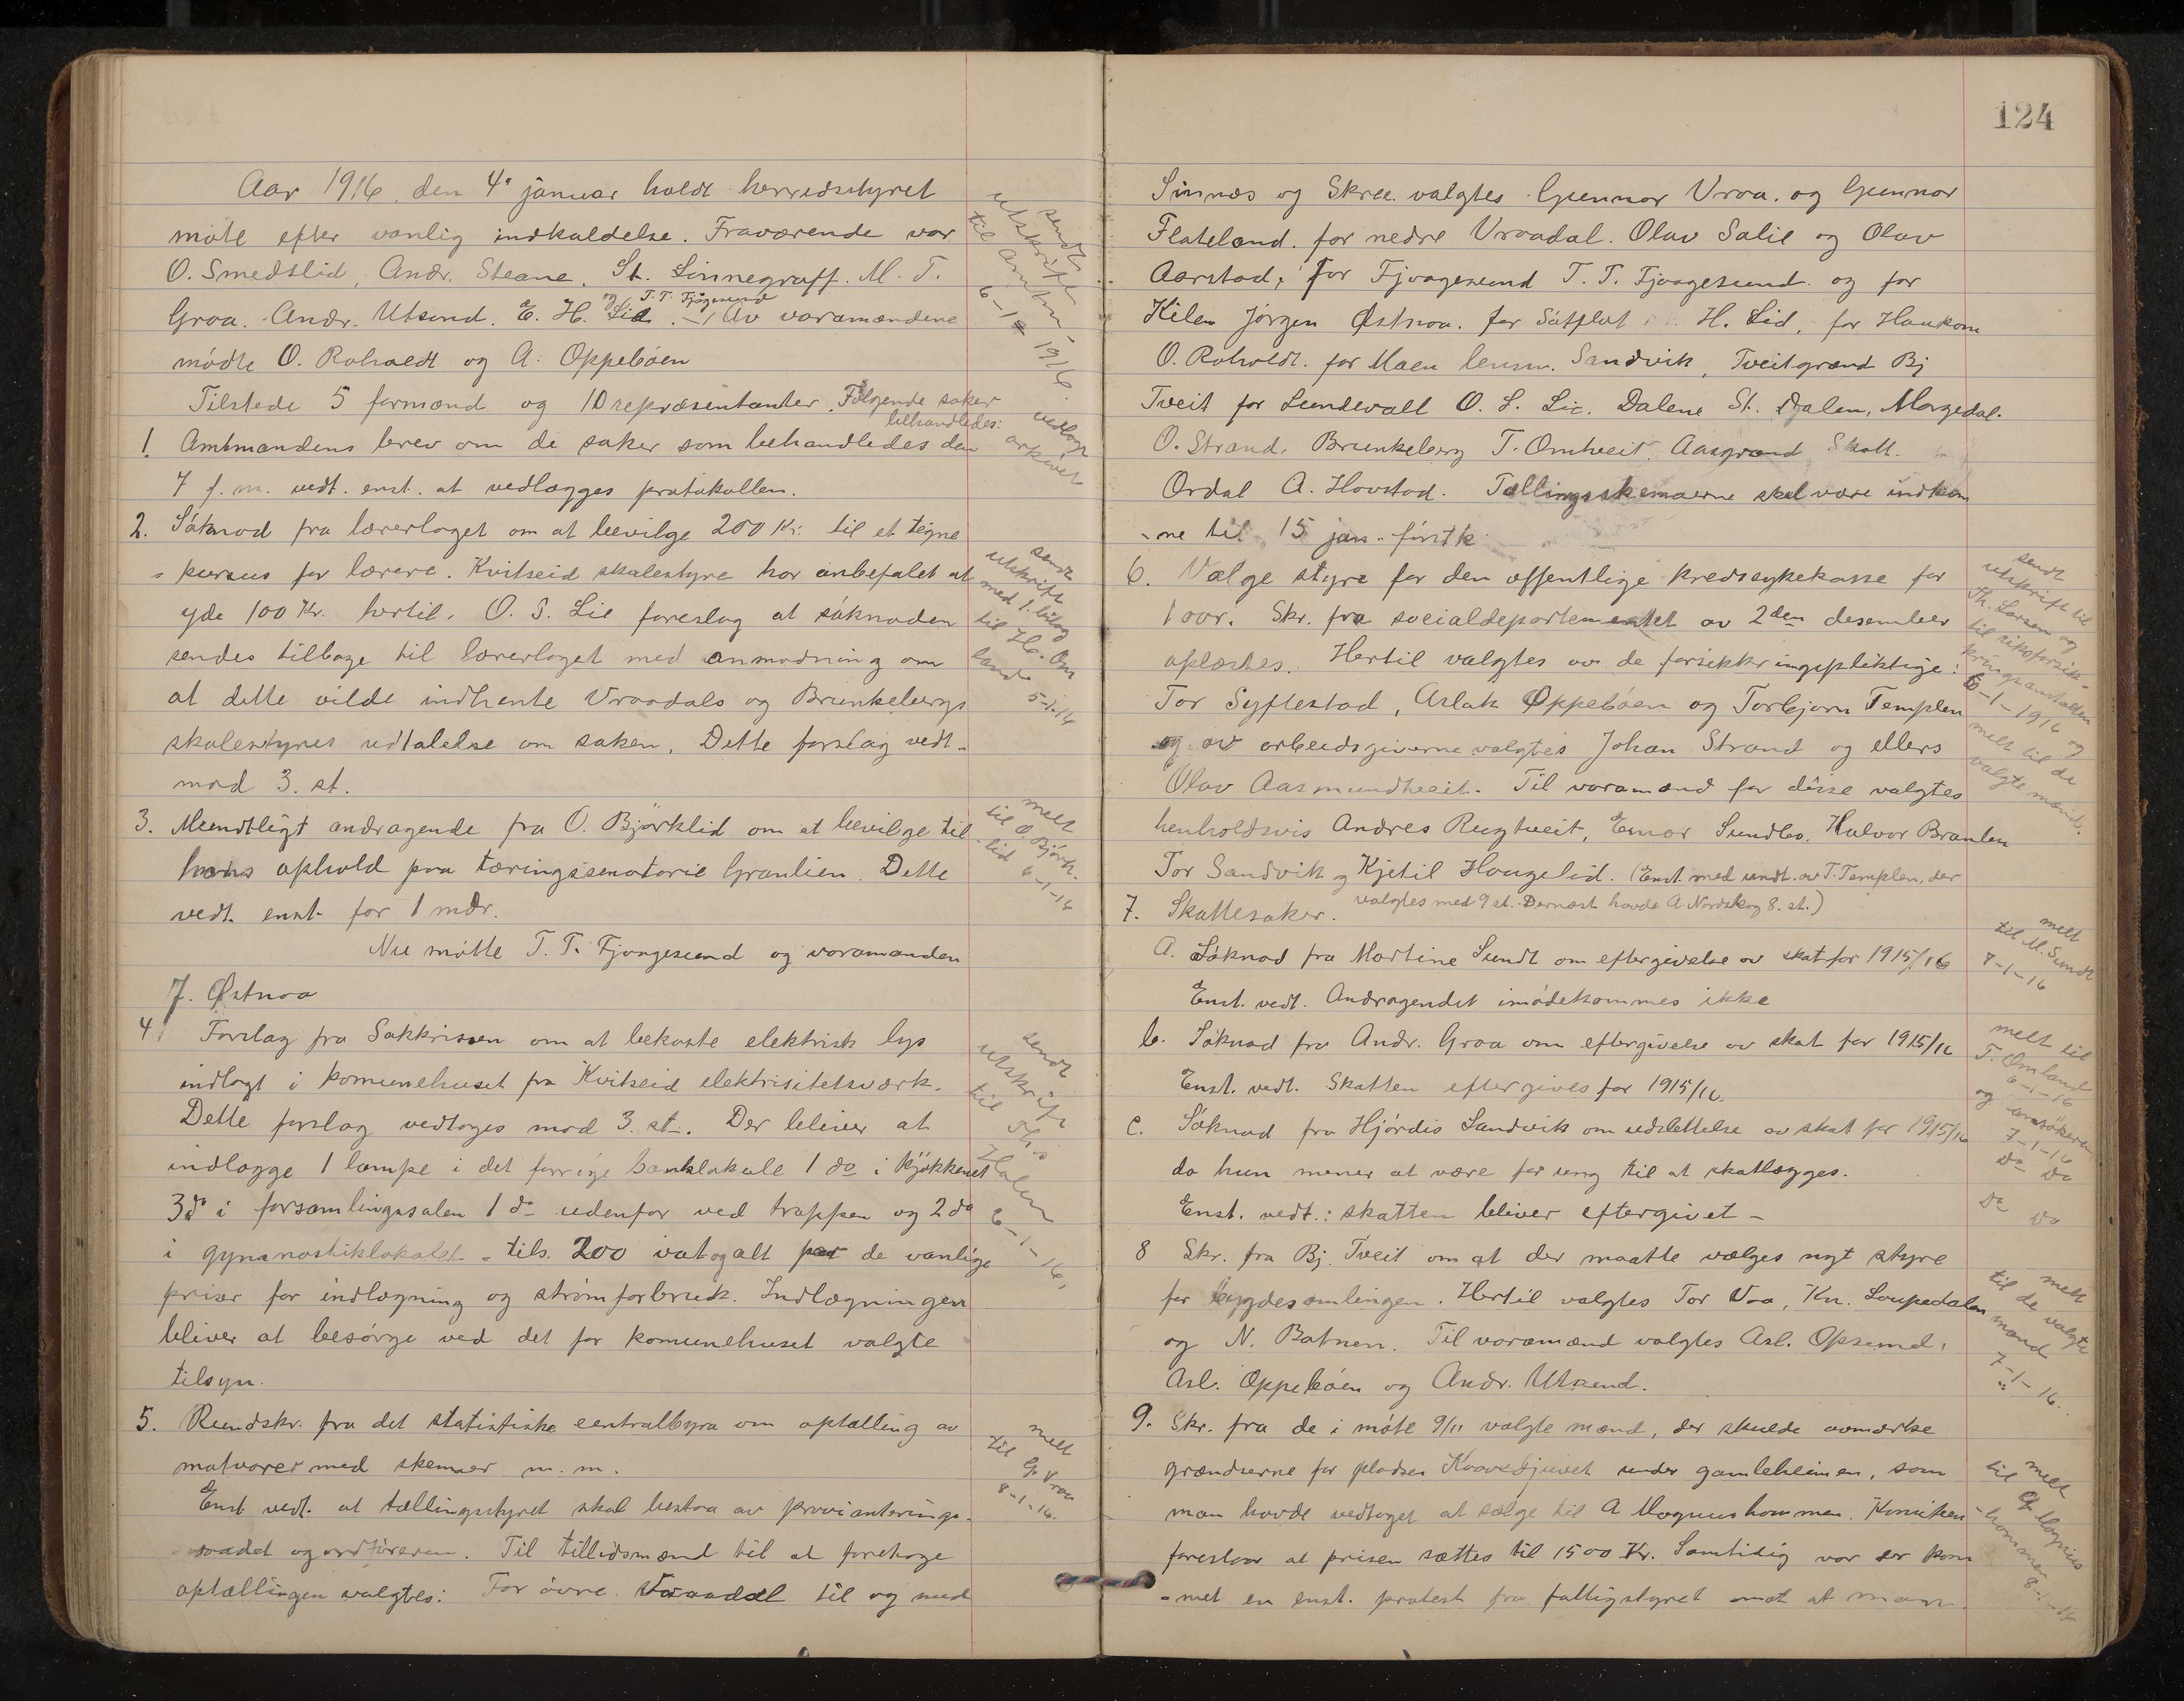 Aar 1916 den 4' januar holdt herredsstyret
møte efter vanlig indkaldelse. Fraværende var
O. Smedslid, Andr. Steane, St. Linnegraff. M. T.
Groa. Andr. Utsund. E. H. Lid og T. T. Fjågesund. Av varamændene
mødte O. Roholdt og A. Oppebøen
Tilstede 5 formænd og 10 repræsentanter. Følgende saker
behandledes:
1. Amtmandens brev om de saker som behandledes den
7 f. m. vedt. enst. at vedlægges protokollen.
2. Søknad fra lærerlaget om at bevilge 200 Kr. til et tegne
= kursus for lærere. Kvitseid skolestyre har anbefalet at
yde 100 Kr. hertil. O. S. Lie foreslog at søknaden
sendes tilbage til lærerlaget med anmodning om
at dette vilde indhente Vraadals og Brunkebergs
skolestyres udtalelse om saken. Dette forslag vedt.
mod 3. st.
3. Mundtligt andragende fra O. Bjørklid om at bevilge til
hans ophold paa tæringssenatorie Granlien. Dette
vedt. enst. for 1 mdr.
Nu møtte T. T. Fjaagesund og varamanden
J. Østnoa
4. Forslag fra Sakkrisson om at bekoste elektrisk lys
indlagt i komunehuset fra Kvitseid elektrisitetsværk.
Dette forslag vedtoges mod 3. st. Der bliver at
indlægge 1 lampe i det forrige banklokale 1 do i kjøkkenet
3 do i forsamlingssalen 1 do udenfor ved trappen og 2 do
i gymnastiklokalet - tils. 200 vat og alt de vanlige
priser for indlægning og strømforbruk. Indlægningen
bliver at besørge ved det for komunehuset valgte
tilsyn.
5. Rundskr. fra det statistiske centralbyra om optælling av
matvarer med skemaer m. m.
Enst vedt. at tællingsstyret skal bestaa av provianterings-
raadet og ordføreren. Til tillidsmænd til at foretage
optællingen valgtes: For øvre Vraadal til og med
sendt
utskrift
til amtm.
6-1 1916.
vedlagt
arkivet
sendt
utskrift
med 1. bilag
til H. Om
land
5-1-16
melt
til O. Bjørk-
lid
6-1-16
sendt
utskrift
til Ths
Dalen
6-1-16,
melt
til G. Vraa
8-1-16.
124
Sinnæs og Skree. valgtes Gunnar Vraa. og Gunnar
Flateland. for nedre Vraadal. Olav Salie og Olav
Aarstad, for Fjaagesund T. T. Fjaagesund. og for
Kilen Jørgen Østnoa. for Sátflat H. Lid, for Haukom
O. Roholdt. for Moen lensm. Sandvik, Tveitgrænd Bj
Tveit for Lundevall O. S. Lie. Dalene St. Dalen, Morgedal.
O. Strand. Brunkeberg T. Omtveit. Aasgrænd Skatt.
Ordal A. Hovstad. Tællingsskemaerne skal være indkom
-ne til 15 jan. førstk
6. Vælge styre for den offentlige kredssykekasse for
1 aar. Skr. fra socialdepartementet av 2den desember
oplæstes. Hertil valgtes av de forsikkringspliktige:
Tor Syftestad, Aslak Oppebøen og Torbjørn Templen
og av arbeidsgiverne valgtes Johan Strand og ellers
Olav Aasmundtveit. Til varamænd for disse valgtes
henholdsvis Andres Rugtveit, Einar Sundbø, Halvor Brauten
Tor Sandvik og Kjetil Haugelid. (Enst. med undt. av T. Templen, der
valgtes med 9 st. Dernæst havde A. Nordskog 8. st.)
7. Skattesaker.
A. Søknad fra Martine Sundt om eftergivelse av skat for 1915/16
Enst. vedt. Andragendet imødekommes ikke
b. Søknad fra Andr. Groa om eftergivelse av skat for 1915/16
Enst. vedt. Skatten eftergives for 1915/16.
c. Søknad fra Hjørdis Sandvik om udslettelse av skat for 1915/16
da hun mener at være for ung til at skatlægges.
Enst. vedt.: skatten bliver eftergivet -
8 Skr. fra Bj. Tveit om at der maatte vælges nyt styre
for bygdesamlingen. Hertil valgtes Tor Vaa, Kn. Loupedalen
og N. Batnen. Til varamænd valgtes Asl. Opsund,
Asl. Oppebøen og Andr. Utsund.
9. Skr. fra de i møte 9/11 valgte mænd, der skulde avmerke
grændserne for pladsen Kaavedjuvet under gamleheimen, som
man havde vedtaget at sælge til A Magnushommen. Komiteen
foreslaar at prisen sættes til 1500 Kr. Samtidig var der kom
-met en enst. protest fra fattigstyret mot at man
sendt
utskrift til
Th. Larsen og
til riksforsik-
kringsanstalten
6-1-1916 og
melt til de
valgte mænd.
melt
til M. Sundt
7-1-16
melt til
T. Omland
6-1-16
og ansøkeren
7-1-16
Do Do
Do Do
melt
til de valgte
mænd
7-1-16.
melt
til A Magnus
-hommen
8-1-16